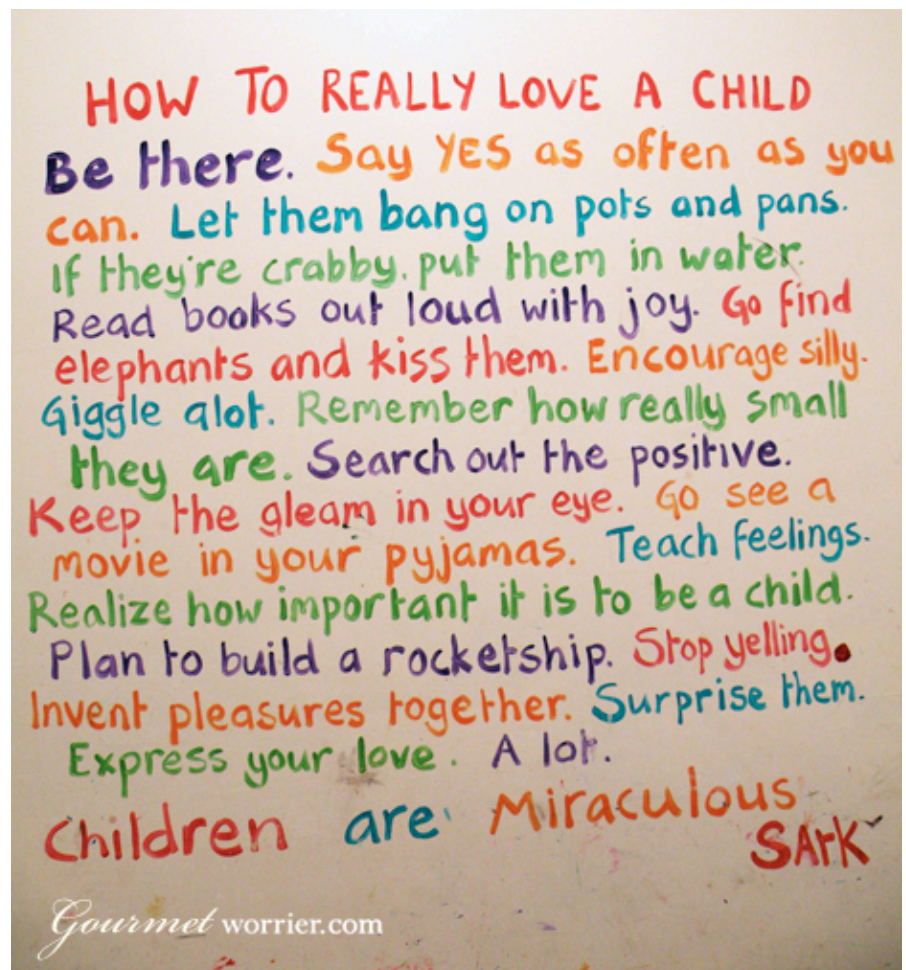 HOW TO REALLY LOVE A CHILD
Be there. Say YES as often as you
can. Let them bang on pots and pans.
If they're crabby, put them in water.
Read books out loud with joy. Go find
elephants and kiss them. Encourage silly.
Giggle alot. Remember how really small
they are. Search out the positive.
Keep the gleam in your eye. Go see a
movie in your pyjamas. Teach feelings.
Realize how important it is to be a child.
Plan to build a rocketship. Stop yelling.
Invent pleasures together. Surprise them.
Express your love. A lot.
Children are Miraculous
SArK
Gourmet worrier.com